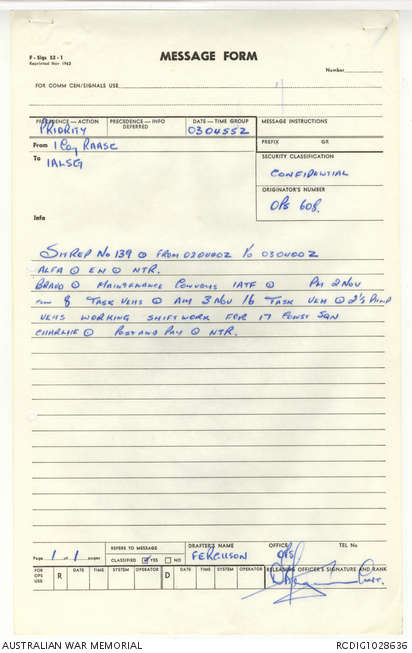 F - Sigs 52 - 1
Reprinted Nov 1965
MESSAGE FORM
Number
FOR COMM CEN/SIGNALS USE
PRECEDENCE — ACTION
PRIORITY
PRECEDENCE — INFO
DEFERRED
DATE — TIME GROUP
030455Z
MESSAGE INSTRUCTIONS
PREFIX GR
From 1 Coy RAASC
To 1ALSG
SECURITY CLASSIFICATION
CONFIDENTIAL
ORIGINATOR'S NUMBER
OPS 608.
Info
SITREP No 139 ⊙ FROM 020400Z To 030400Z
ALFA ⊙ EN ⊙ NTR.
BRAVO ⊙ MAINTENANCE CONVOYS 1ATF ⊙ PM 2 NOV
8 TASK VEHS ⊙ AM 3 NOV 16 TASK VEH ⊙ 2's DUMP
VEHS WORKING SHIFTWORK FOR 17 CONST SQN
CHARLIE ⊙ POST AND PAY ⊙ NTR.
Page 1 of 1 pages
REFERS TO MESSAGE
CLASSIFIED YES NO
DRAFTER'S NAME
FERGUSON
OFFICE
OPS
TEL No
FOR OPS USE
R DATE TIME SYSTEM OPERATOR D DATE TIME SYSTEM OPERATOR RELEASING OFFICER'S SIGNATURE AND RANK
AUSTRALIAN WAR MEMORIAL
RCDIG1028636